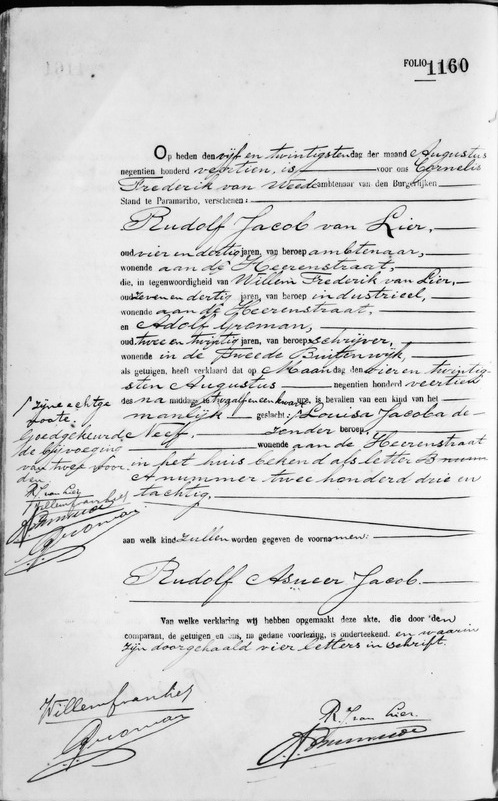 FOLIO 1160
Op heden den vijf en twintigsten dag der maand Augustus
negentien honderd veertien, is voor ons Cornelis
Frederik van ambtenaar van den Burgerlijken
Stand te Paramaribo, verschenen:
Rudolf Jacob van Lier,
oud vier en dertig jaren, van beroep ambtenaar,
wonende aan de Heerenstraat,
die, in tegenwoordigheid van Willem Frederik van Lier,
oud zeven en dertig jaren, van beroep industrieel,
wonende aan de Heerenstraat,
en Adolf Groman,
oud twee en twintig jaren, van beroep schrijver,
wonende in de Tweede Buitenwijk,
als getuigen, heeft verklaard dat op Maandag den vier en twintig-
sten Augustus negentien honderd veertien
des na middags te twaalf en een kwart ure, is bevallen van een kind van het
manlijk geslacht: Louisa Jacoba de-
Neef, zonder beroep,
wonende aan de Heerenstraat
in het huis bekend als letter B
A nummer twee honderd drie en
tachtig,
zijne echtge
noote.
Goedgekeurd
de bijvoeging
van twee woor
den
R J van Lier
Willem fran Lier
Groman
aan welk kind zullen worden gegeven de voornamen:
Rudolf Asueer Jacob.
Van welke verklaring wij hebben opgemaakt deze akte, die door den
comparant, de getuigen en ons, na gedane voorlezing, is onderteekend. en waarin
zijn doorgehaald vier letters in schrift.
Willem fran Lier
R. J. van Lier.
Groman